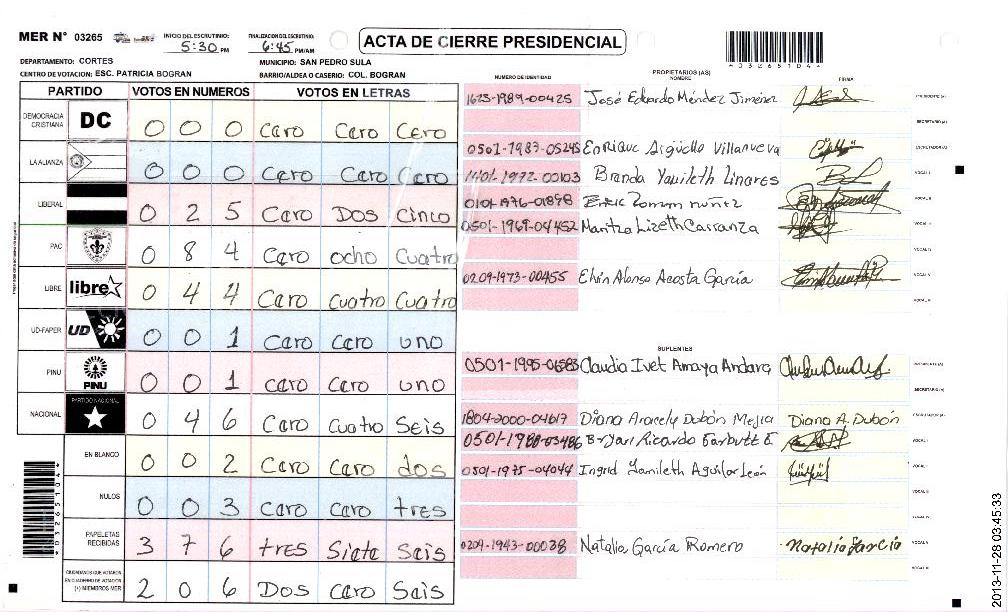 MER N° 03265
INICIO DEL ESCRUTINIO: 5:30 PM
FINALIZACION DEL ESCRUTINIO: 6:45 PM/AM
ACTA DE CIERRE PRESIDENCIAL
4032651041
DEPARTAMENTO: CORTES
MUNICIPIO: SAN PEDRO SULA
CENTRO DE VOTACION: ESC. PATRICIA BOGRAN
BARRIO/ALDEA O CASERIO: COL. BOGRAN
PARTIDO VOTOS EN NUMEROS VOTOS EN LETRAS
DEMOCRACIA CRISTIANA DC 0 0 0 Caro Caro Cero
LA ALIANZA 0 0 0 Caro Caro Caro
LIBERAL 0 2 5 Caro Dos Cinco
PAC 0 8 4 Caro ocho Cuatro
LIBRE libre 0 4 4 Caro Cuatro Cuatro
UD-FAPER UD 0 0 1 Caro Caro uno
PINU PINU 0 0 1 Caro Caro uno
NACIONAL PARTIDO NACIONAL 0 4 6 Caro Cuatro Seis
EN BLANCO 0 0 2 Caro Caro dos
NULOS 0 0 3 Caro Caro tres
PAPELETAS RECIBIDAS 3 7 6 tres Siete Seis
CIUDADANOS QUE VOTARON EN CUADERNO DE VOTACION (+) MIEMBROS MER 2 0 6 Dos Caro Sais
NUMERO DE IDENTIDAD
PROPIETARIOS (AS)
NOMBRE
FIRMA
1623-1989-00425 José Eduardo Méndez Jiménez PRESIDENTE (A)
SECRETARIO (A)
0501-1983-05245 Enrique Argüello Villanueva ESCRUTADOR (A)
1401-1972-00103 Branda Yamileth Linares VOCAL I
0101-1976-01898 Eric Roman nuñez VOCAL II
0501-1969-04452 Maritza Lizeth Carranza VOCAL III
VOCAL IV
0209-1973-00455 Elvin Alonso Acosta García VOCAL V
VOCAL VI
SUPLENTES
0501-1995-01583 Claudia Ivet Amaya Andara PRESIDENTE (A)
SECRETARIO (A)
1804-2000-04617 Diana Aracely Dubón Mejia Diana A. Dubón ESCRUTADOR (A)
0501-1988-03486 Bryan Ricardo VOCAL I
0501-1975-04044 Ingrid Yamileth Aguilar León VOCAL II
VOCAL III
VOCAL IV
0209-1943-00038 Natalia García Romero Natalia García VOCAL V
VOCAL VI
4032651041
2013-11-28 03:45:33